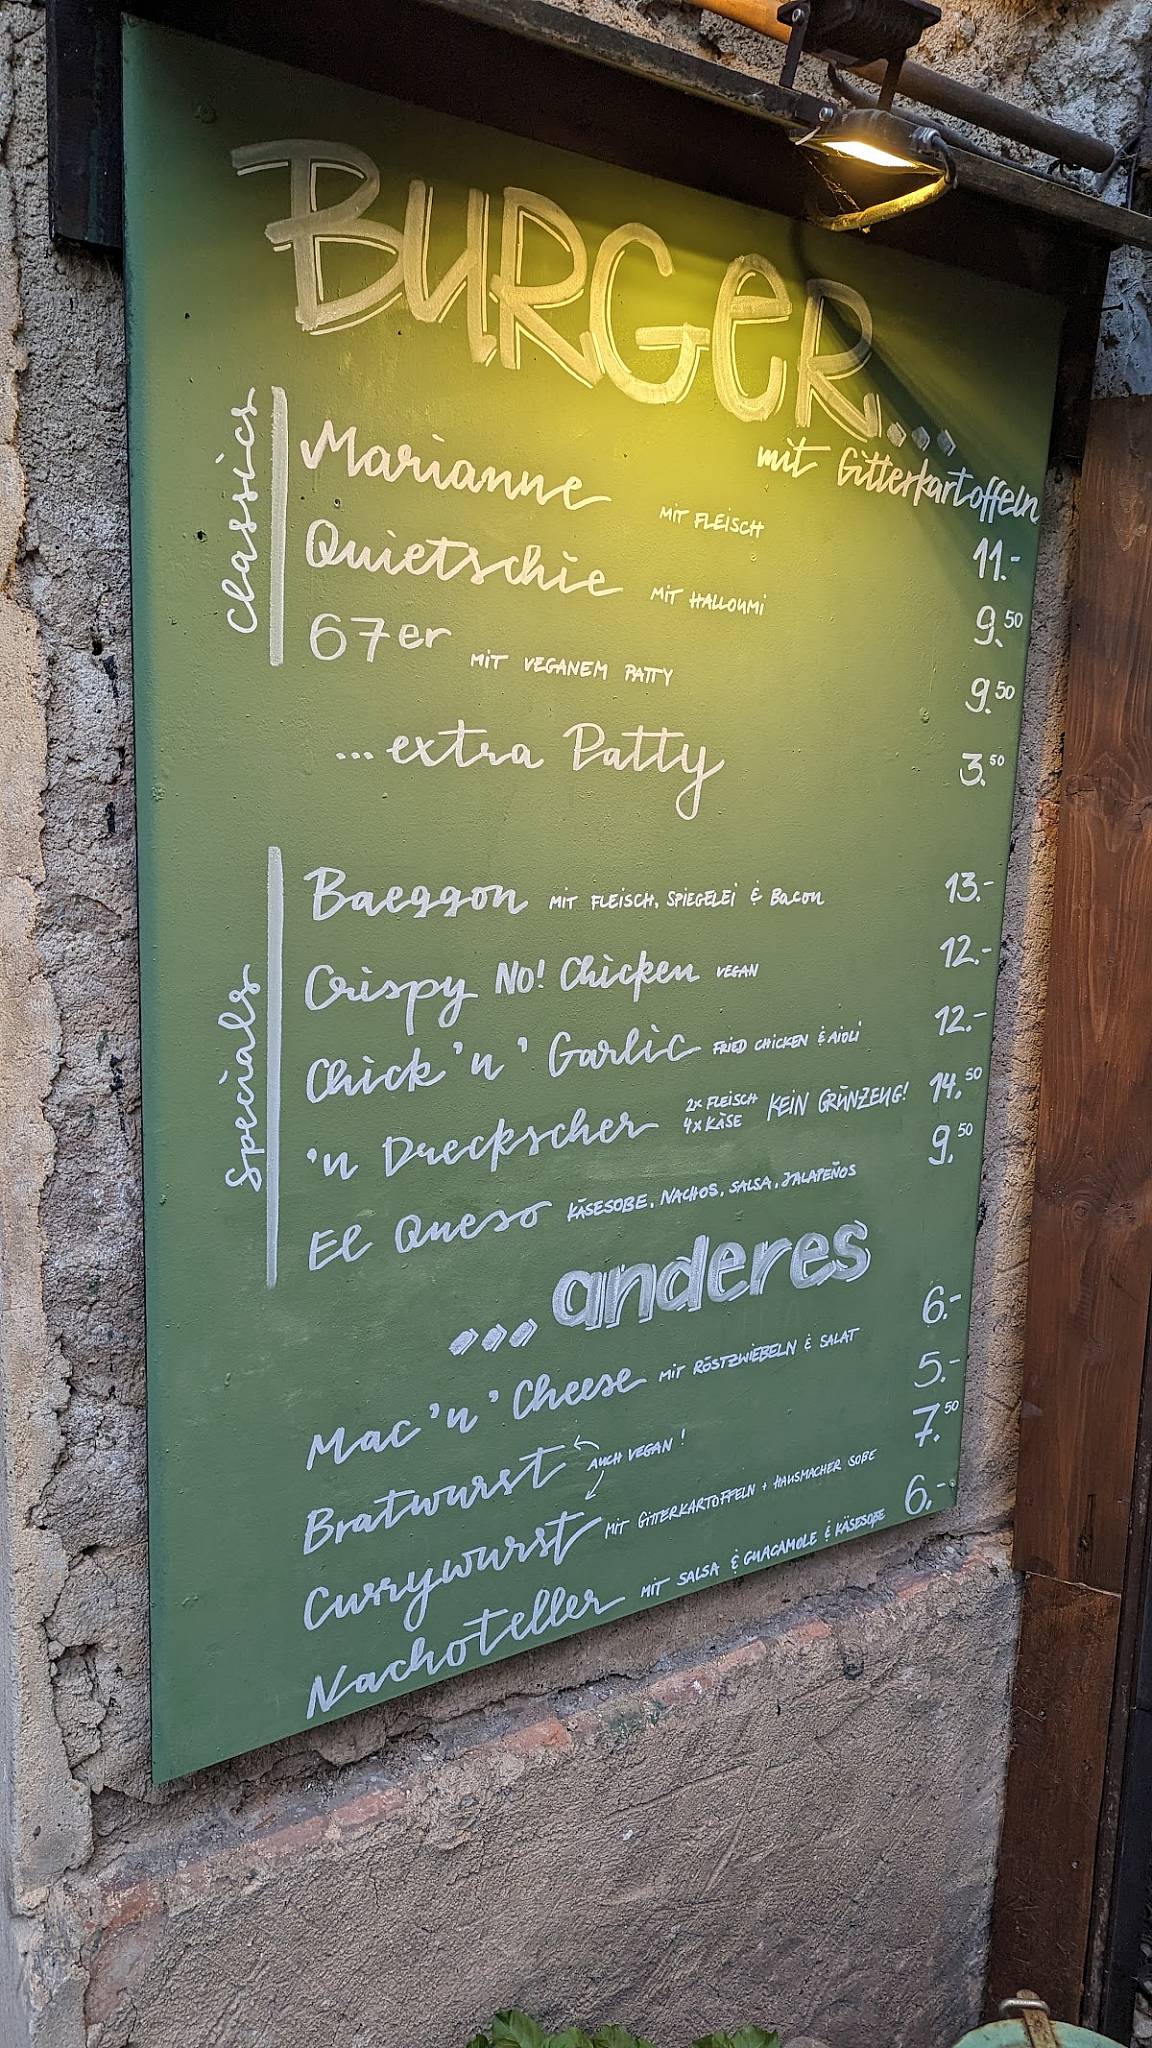 BURGER...
mit Gitterkartoffeln
Classics
Marianne MIT FLEISCH 11.-
Quietschie MIT HALLOUMI 9.50
67er MIT VEGANEM PATTY 9.50
...extra Patty 3.50
Specials
Baeggon MIT FLEISCH, SPIEGELEI & Bacon 13.-
Crispy NO! Chicken VEGAN 12.-
Chick 'n' Garlic FRIED CHICKEN & AIOLI 12.-
'n Dreckscher 2x FLEISCH 4x KÄSE KEIN GRÜNZEUG! 14.50
El Queso KÄSESOßE, NACHOS, SALSA, JALAPEÑOS 9.50
...anderes
Mac 'n' Cheese MIT RÖSTZWIEBELN & SALAT 6.-
Bratwurst AUCH VEGAN! 5.-
Currywurst MIT GITTERKARTOFFELN + HAUSMACHER SOßE 7.50
Nachoteller MIT SALSA & GUACAMOLE & KÄSESOßE 6.-